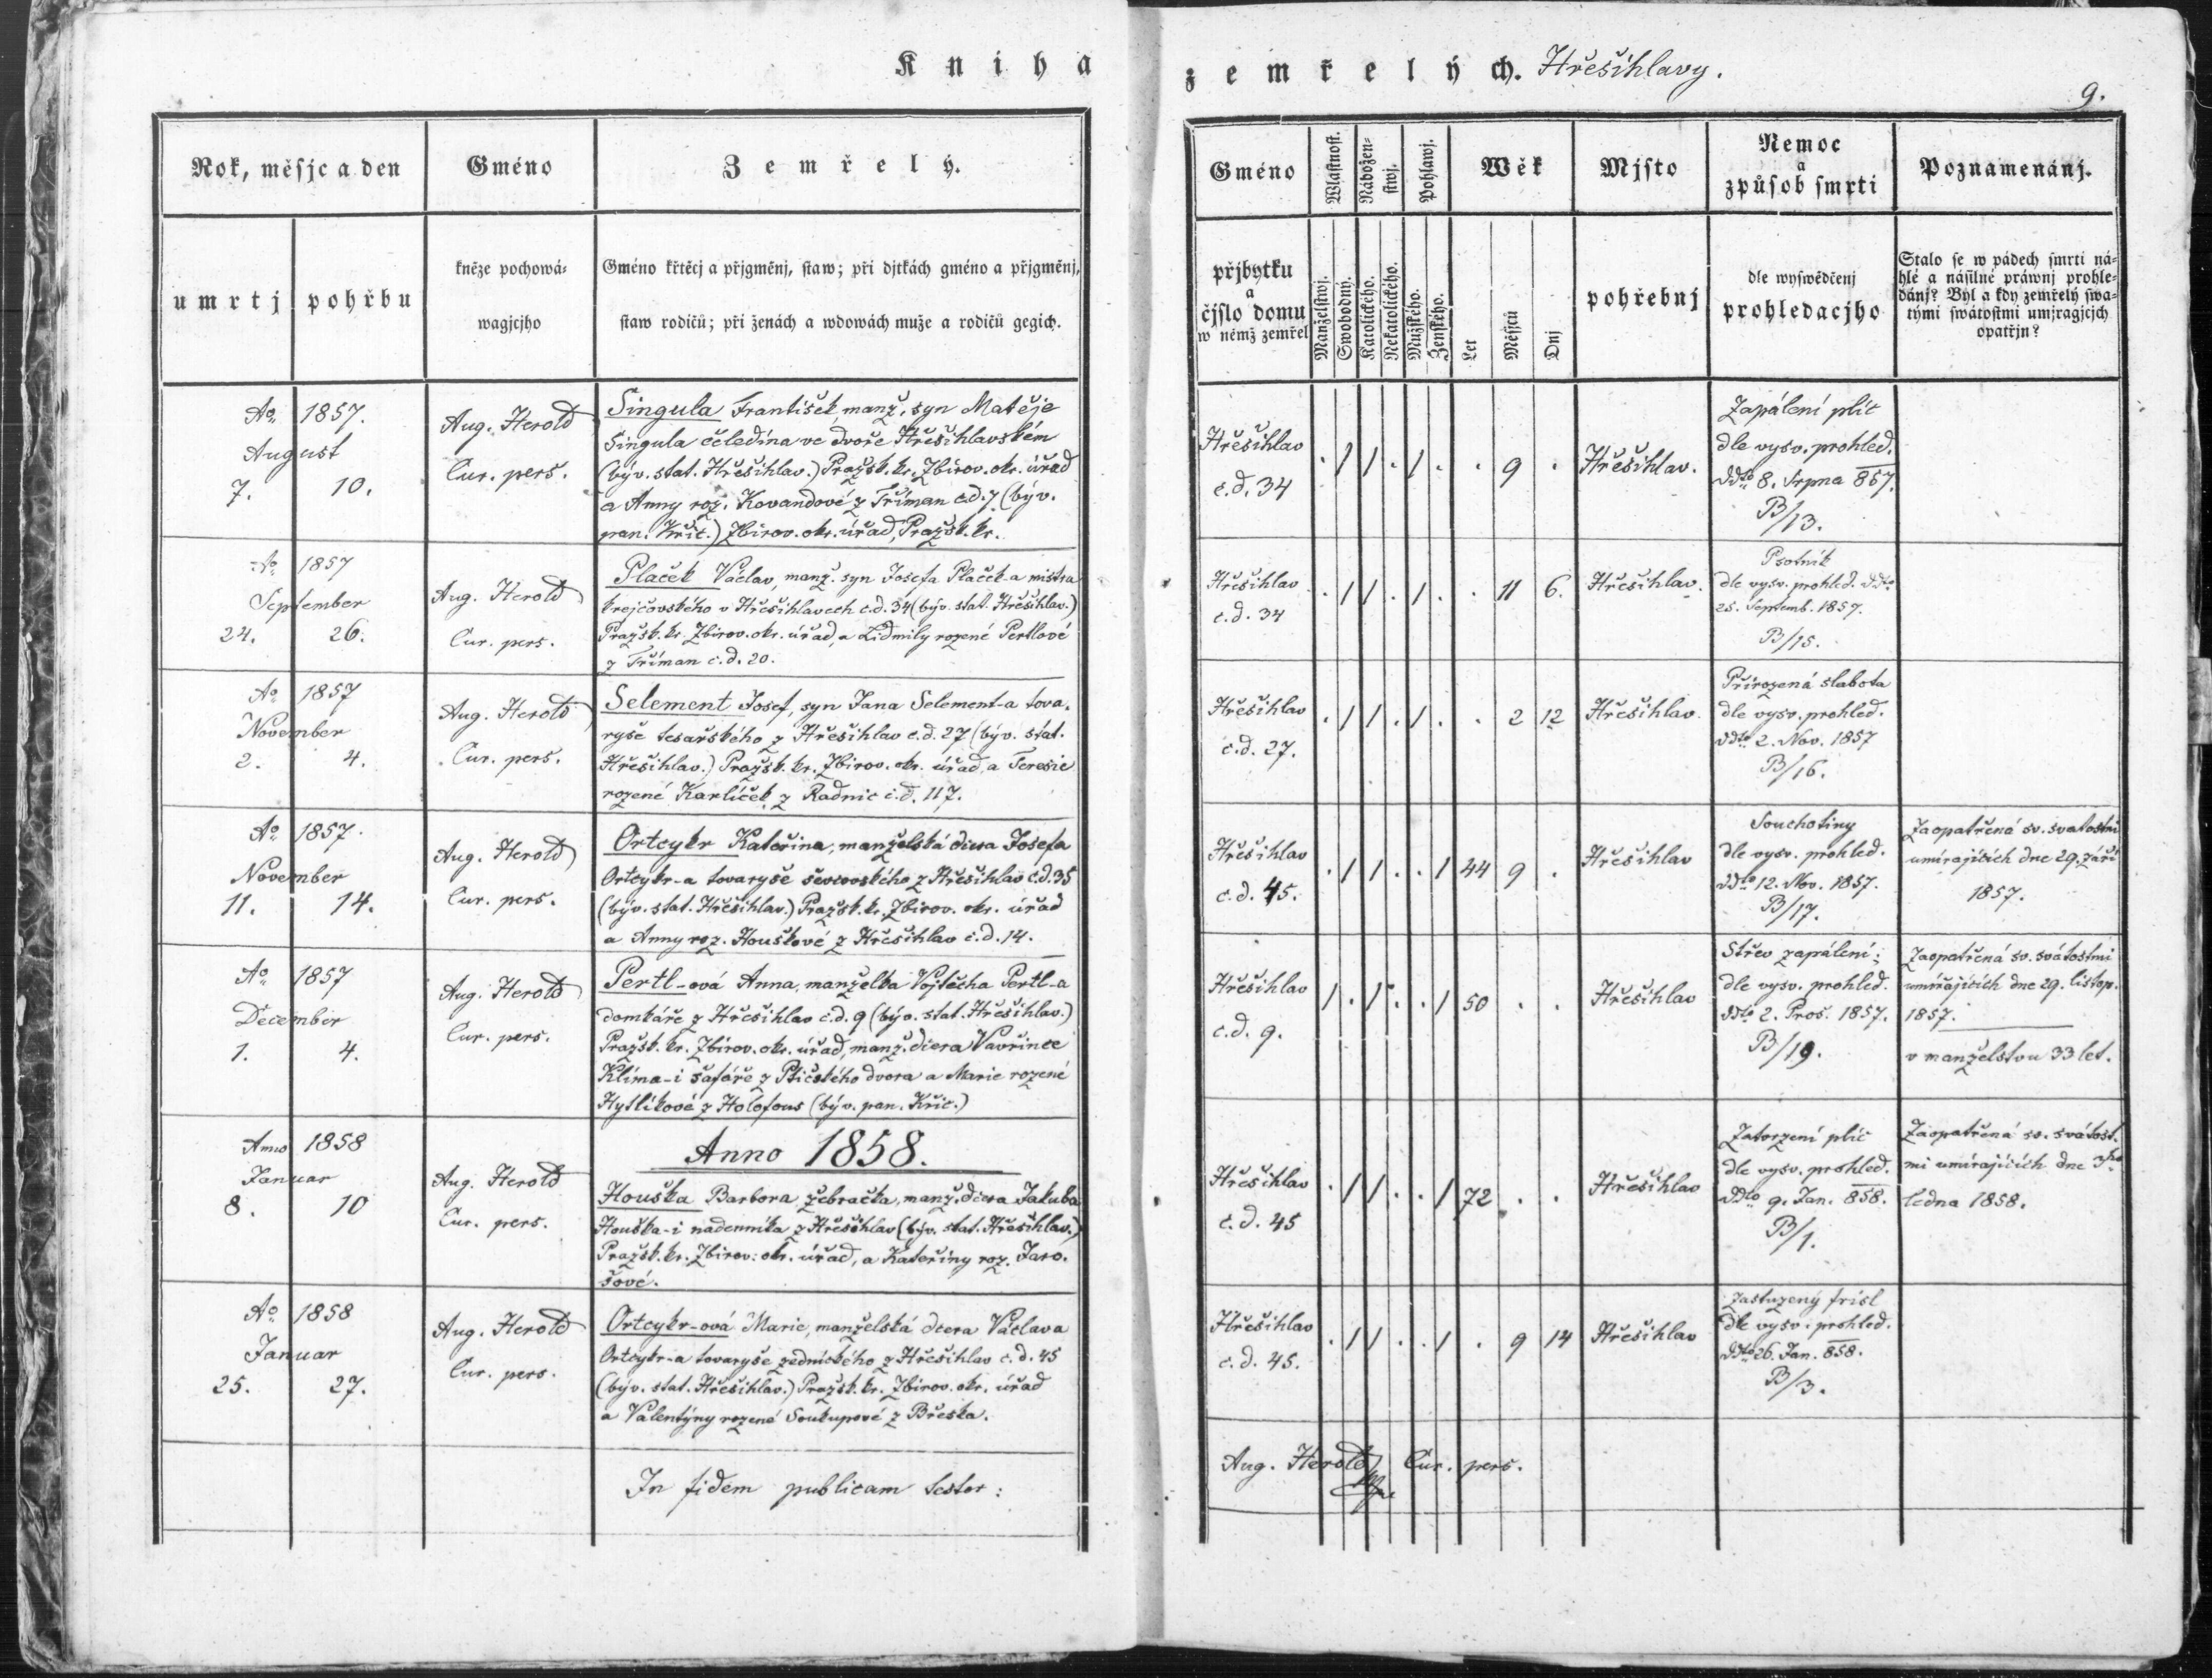 Kniha zemřelých. Hřešihlavy.
9.
Rok, měsjc a den
umrtj
pohřbu
Gméno
kněze pochowá-
wagjcjho
Zemřelý.
Gméno křtěcj a přjgměnj, staw; při djtkách gméno a přjgměnj,
staw rodičů; při ženách a wdowách muže a rodičů gegich.
Gméno
přjbytku
a
čjslo domu
w němž zemřel
Wlastnost.
Manželstwj.
Swobodný.
Nábožen-
stwj.
Katolického.
Nekatolického.
Pohlawj.
Mužského.
Ženského.
Wěk
Let
Měsjců
Dnj
Mjsto
pohřebnj
Nemoc
a
způsob smrti
dle wyswědčenj
prohledacjho
Poznamenánj.
Stalo se w pádech smrti ná-
hlé a násilné práwnj prohle-
dánj? Byl a kdy zemřelý swa-
tými swátostmi umjragjcjch
opatřjn?
Ao 1857.
August
7. 10.
Aug. Herold
Cur. pers.
Singula František, manž. syn Matěje
Singula čeledína ve dvoře Hřešihlavském
(býv. stat. Hřešihlav.) Pražsk. kr. Zbirov. okr. úřad
a Anny roz. Kovandové z Tříman č.d. 7 (býv.
pan. Křič.) Zbirov. okr. úřad, Pražsk. kr.
Hřešihlav
č.d. 34
. / / . / . . 9 .
Hřešihlav.
Zapálení plic
dle vysv. prohled.
ddto 8. Srpna 857.
B/13.
Ao 1857
September
24. 26.
Aug. Herold
Cur. pers.
Plaček Václav, manž. syn Josefa Plaček-a mistra
krejčovského v Hřešihlavech č.d. 34 (býv. stat. Hřešihlav.)
Pražsk. kr. Zbirov. okr. úřad, a Lidmily rozené Pertlové
z Tříman č.d. 20.
Hřešihlav
č.d. 34
. / / . / . . 11 6.
Hřešihlav.
Psotník
dle vysv. prohled. ddto
25. Septemb. 1857.
B/15.
Ao 1857
November
2. 4.
Aug. Herold
Cur. pers.
Selement Josef, syn Jana Selement-a tova-
ryše tesařského z Hřešihlav č.d. 27 (býv. stat.
Hřešihlav.) Pražsk. kr. Zbirov. okr. úřad, a Teresie
rozené Karlíček z Radnic č.d. 117.
Hřešihlav
č.d. 27.
. / / . / . . 2 12
Hřešihlav.
Přirozená slabota
dle vysv. prohled.
ddto 2. Nov. 1857
B/16.
Ao 1857.
November
11. 14.
Aug. Herold
Cur. pers.
Ortcykr Kateřina, manželská dcera Josefa
Ortcykr-a tovaryše ševcovského z Hřešihlav č.d. 35
(býv. stat. Hřešihlav.) Pražsk. kr. Zbirov. okr. úřad
a Anny roz. Houškové z Hřešihlav č.d. 14.
Hřešihlav
č.d. 45.
. / / . . / 44 9 .
Hřešihlav
Souchotiny
dle vysv. prohled.
ddto 12. Nov. 1857.
B/17.
Zaopatřená sv. svatostmi
umírajících dne 29. září
1857.
Ao 1857
December
1. 4.
Aug. Herold
Cur. pers.
Pertl-ová Anna, manželka Vojtěcha Pertl-a
domkáře z Hřešihlav č.d. 9 (býv. stat. Hřešihlav.)
Pražsk. kr. Zbirov. okr. úřad, manž. dcera Vavřince
Klíma-i šafáře z Ptičského dvora a Marie rozené
Hytlíkové z Holofous (býv. pan. Křič.)
Hřešihlav
č.d. 9.
/ . / . . / 50 . .
Hřešihlav
Střev zapálení;
dle vysv. prohled.
ddto 2. Pros. 1857.
B/19.
Zaopatřená sv. svátostmi
umírajících dne 29. listop.
1857.
v manželstvu 33 let.
Anno 1858
Januar
8. 10
Aug. Herold
Cur. pers.
Anno 1858.
Houška Barbora žebračka, manž. dcera Jakuba
Houška-i nadenníka z Hřešihlav (býv. stat. Hřešihlav.)
Pražsk. kr. Zbirov. okr. úřad, a Kateřiny roz. Jaro-
šové.
Hřešihlav
č.d. 45
. / / . . / 72 . .
Hřešihlav
plic
dle vysv. prohled.
ddto 9. Jan. 858.
B/1.
Zaopatřená sv. svátost-
mi umírajících dne 3ho
ledna 1858.
Ao 1858
Januar
25. 27.
Aug. Herold
Cur. pers.
Ortcykr-ová Marie, manželská dcera Václava
Ortcykr-a tovaryše zednického z Hřešihlav č.d. 45
(býv. stat. Hřešihlav.) Pražsk. kr. Zbirov. okr. úřad
a Valentýny rozené Soukupové z Břeska.
Hřešihlav
č.d. 45.
. / / . . / . 9 14
Hřešihlav
frísl
dle vysv. prohled.
ddto 26. Jan. 858.
B/3.
In fidem publicam testor:
Aug. Herold Cur. pers.